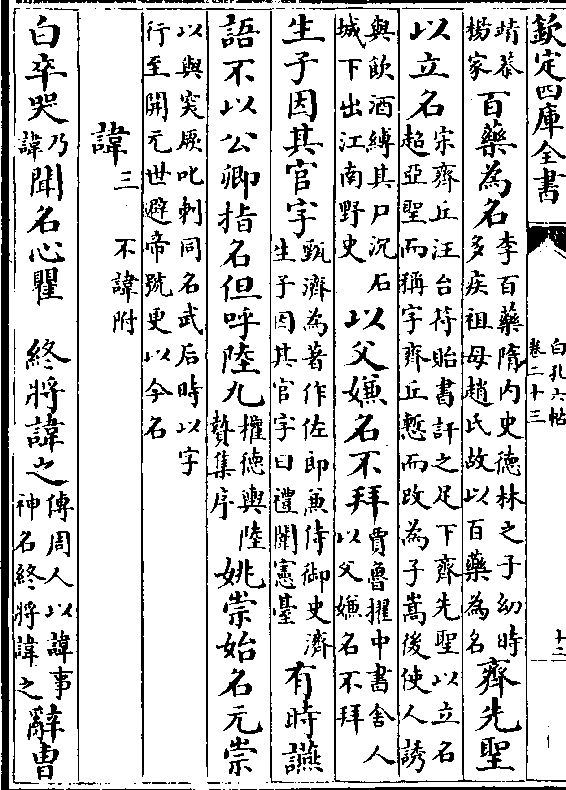 欽定四庫全書
白孔六帖
卷二十三
十二
靖恭
楊家
百藥為名
李百藥隋内史德林之子幼時
多疾祖母趙氏故以百藥為名
齊先聖
以立名
宋齊丘汪台符貽書訐之足下齊先聖以立名
超亞聖而稱字齊丘慙而改為子嵩後使人誘
與飲酒縛其尸沉石
城下出江南野史
以父嫌名不拜
賈魯擢中書舍人
以父嫌名不拜
生子因其官字
甄濟為著作佐郎兼侍御史濟
生子因其官字曰禮闈憲臺
有時讌
語不以公卿指名但呼陸九
權德輿陸
贄集序
姚崇始名元崇
以與突厥叱剌同名武后時以字
行至開元世避帝號更以今名
諱
三
不諱附
白卒哭
乃
諱
聞名心瞿
終將諱之
傳周人以諱事
神名終將諱之
辭曹